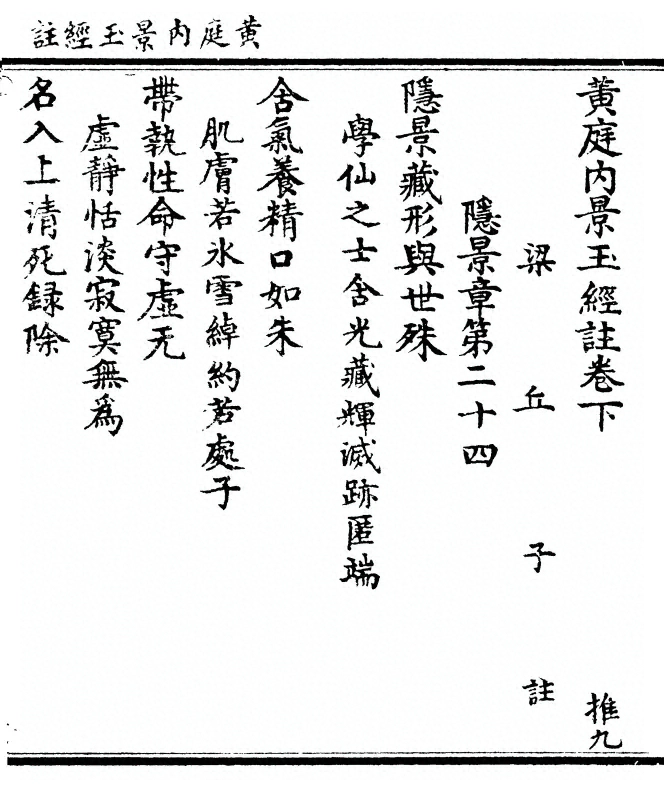 黄庭内景玉經註
黄庭内景玉經註卷下
推九
梁丘子註
隱景章第二十四
隱景藏形與世殊
學仙之士含光藏輝滅跡匿端
含氣養精口如朱
肌膚若氷雪綽約若處子
帶執性命守虛无
虛靜恬淡寂寞無爲
名入上清死録除